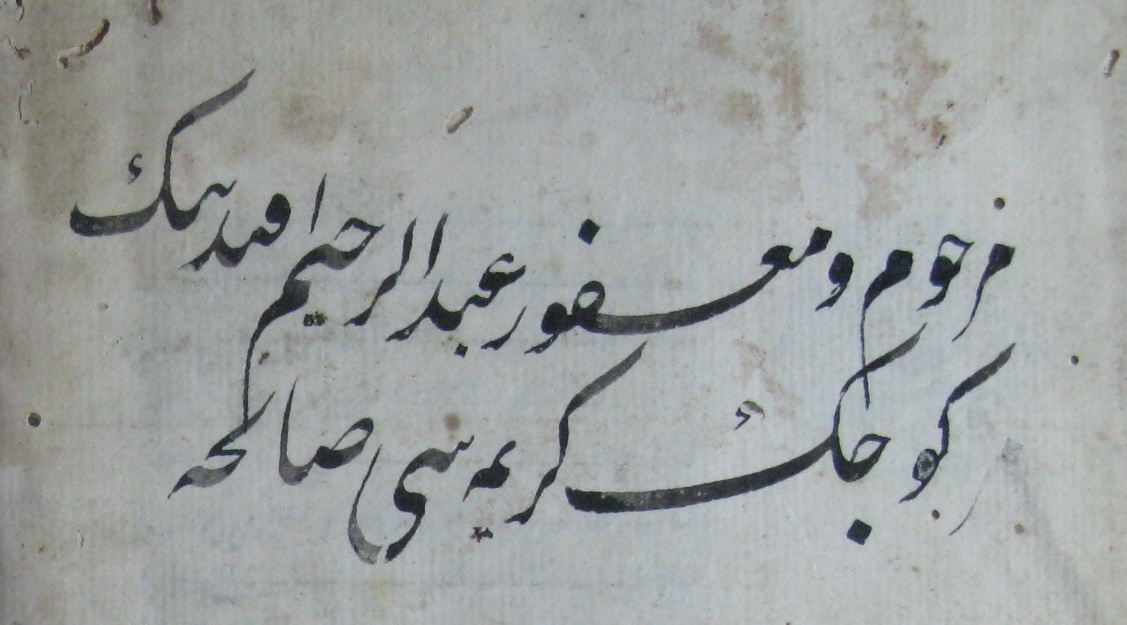 مرحوم و مغفور عبد الرحيم افندينك
كوجك كريمه سی صالحه